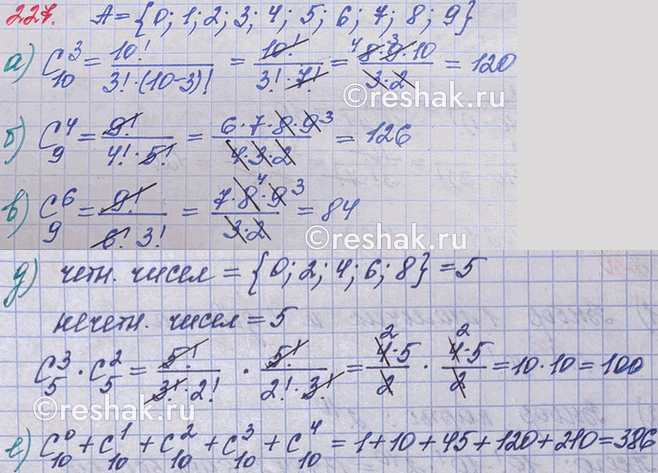 227. A = {0; 1; 2; 3; 4; 5; 6; 7; 8; 9}
а) C₁₀³ = 10!/(3!·(10-3)!) = 10!/(3!·7!) = (⁴8·³9·10)/(3·2) = 120
reshak.ru
б) C₉⁴ = 9!/(4!·5!) = (6·7·8·9³)/(4·3·2) = 126
в) C₉⁶ = 9!/(6!·3!) = (7·8⁴·9³)/(3·2) = 84
reshak.ru
д) четн. чисел = {0; 2; 4; 6; 8} = 5
нечетн. чисел = 5
C₅³ · C₅² = 5!/(3!·2!) · 5!/(2!·3!) = (²4·5)/2 · (²4·5)/2 = 10·10 = 100
reshak.ru
е) C₁₀⁰ + C₁₀¹ + C₁₀² + C₁₀³ + C₁₀⁴ = 1+10+45+120+210 = 386